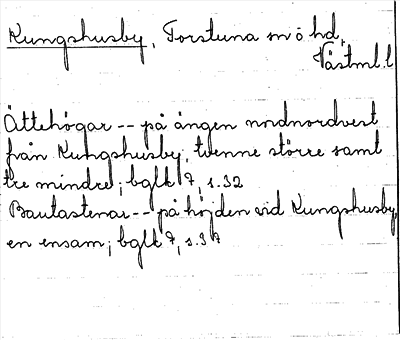 Kungshusby, Torstuna sn ö hd,
Västml. l
Ättehögar -- på ängen nordnordvest
från Kungshusby, tvenne större samt
tre mindre; bglk 7, s. 32
Bautastenar -- på höjden vid Kungshusby,
en ensam; bglk 7, s. 37